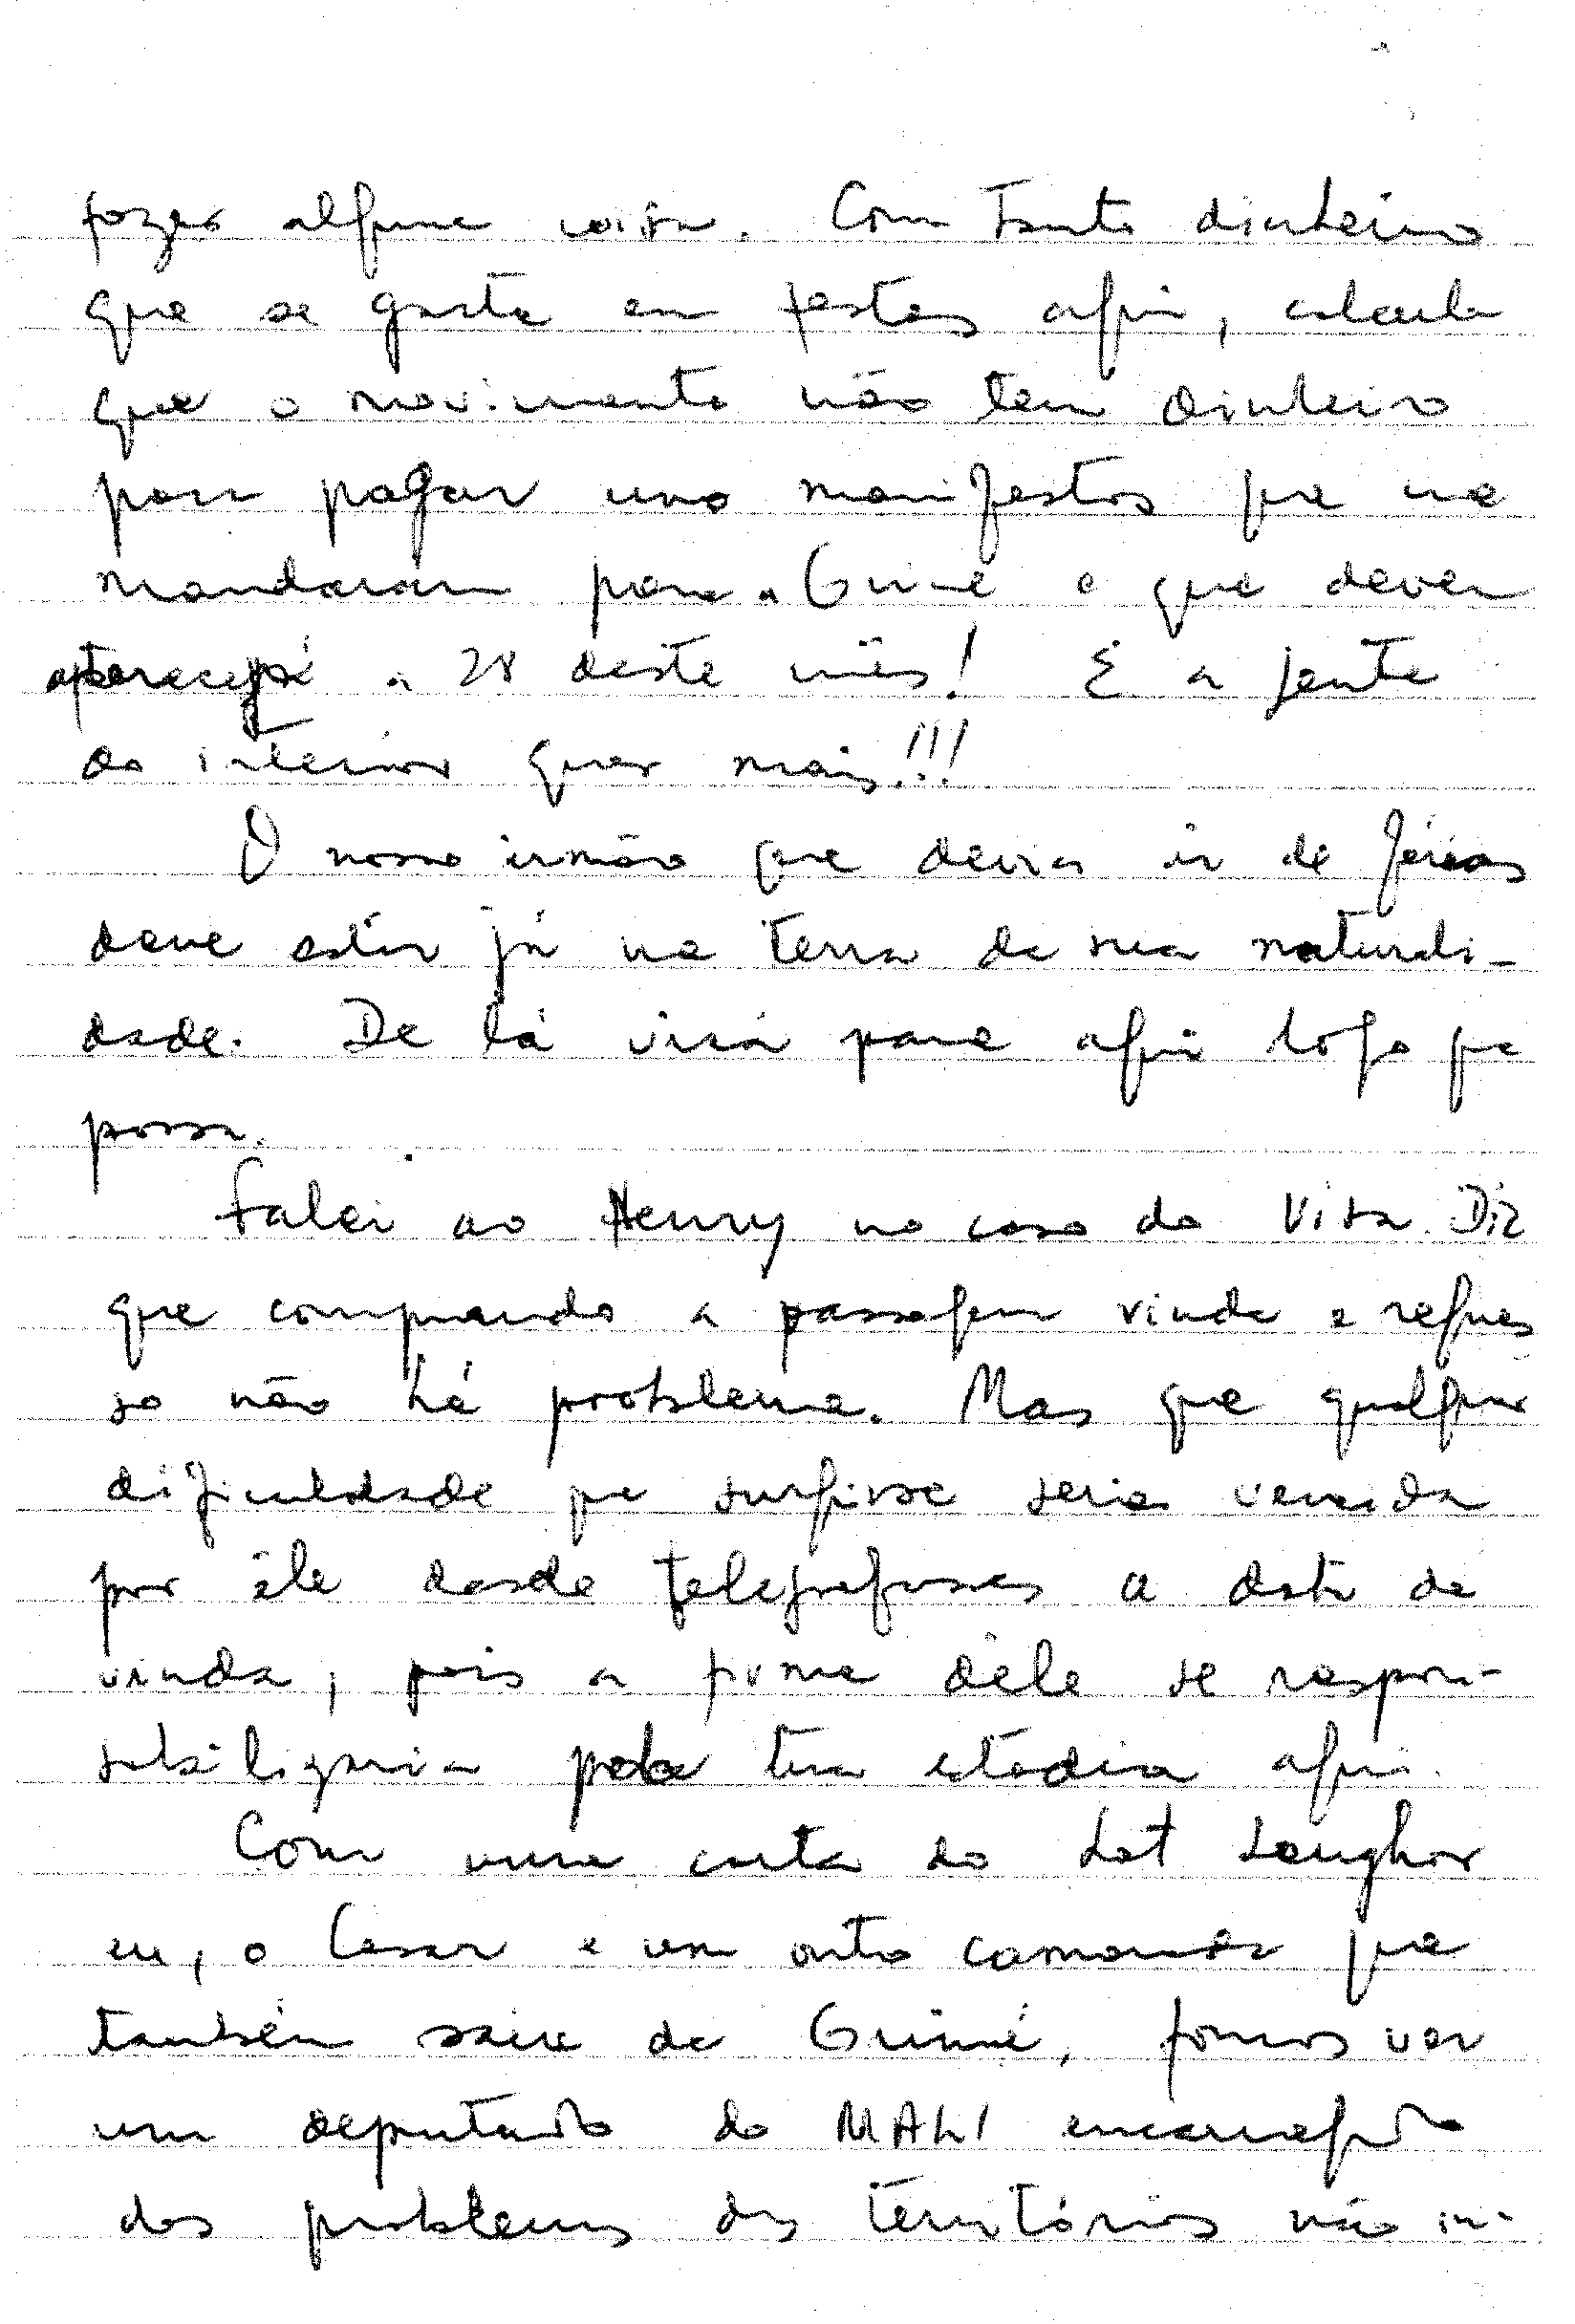 fazer alguma coisa. Com tanto dinheiro
que se gasta em festas aqui, calcula
que o movimento não tem dinheiro
para pagar uns manifestos que se
mandaram para a Guiné e que devem
aparecer a 28 deste mês! E a gente
do interior quer mais!!!
O nosso irmão que devia ir de férias
deve estar já na terra da sua naturali-
dade. De lá virá para aqui logo que
possa.
Falei ao Henry no caso do Vita. Diz
que comprando a passagem vinda e regres
so não há problema. Mas que qualquer
dificuldade que surgisse seria vencida
por êle desde telegrafasses a data da
vinda, pois a firma dêle se respon-
sabilizaria pela tua estadia aqui.
Com uma carta do Lat Senghor
eu, o Cesar e um outro camarada que
também saiu da Guiné, fomos ver
um deputado do MALI encarregado
dos problemas dos territórios não in-